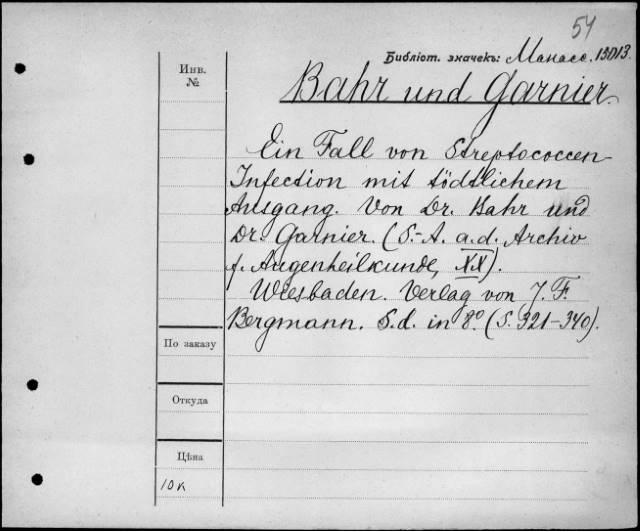 54
Библіот. значекъ: Манасс. 13013.
Инв.
№
Bahr und Garnier.
Ein Fall von Streptococcen-
Infection mit tödtlichem
Ausgang. Von Dr. Bahr und
Dr. Garnier. (S.-A. a. d. Archiv
f. Augenheilkunde, XX).
Wiesbaden. Verlag von J. F.
Bergmann. S.d. in 8º. (S. 321-340).
По заказу
Откуда
Цѣна
10 к